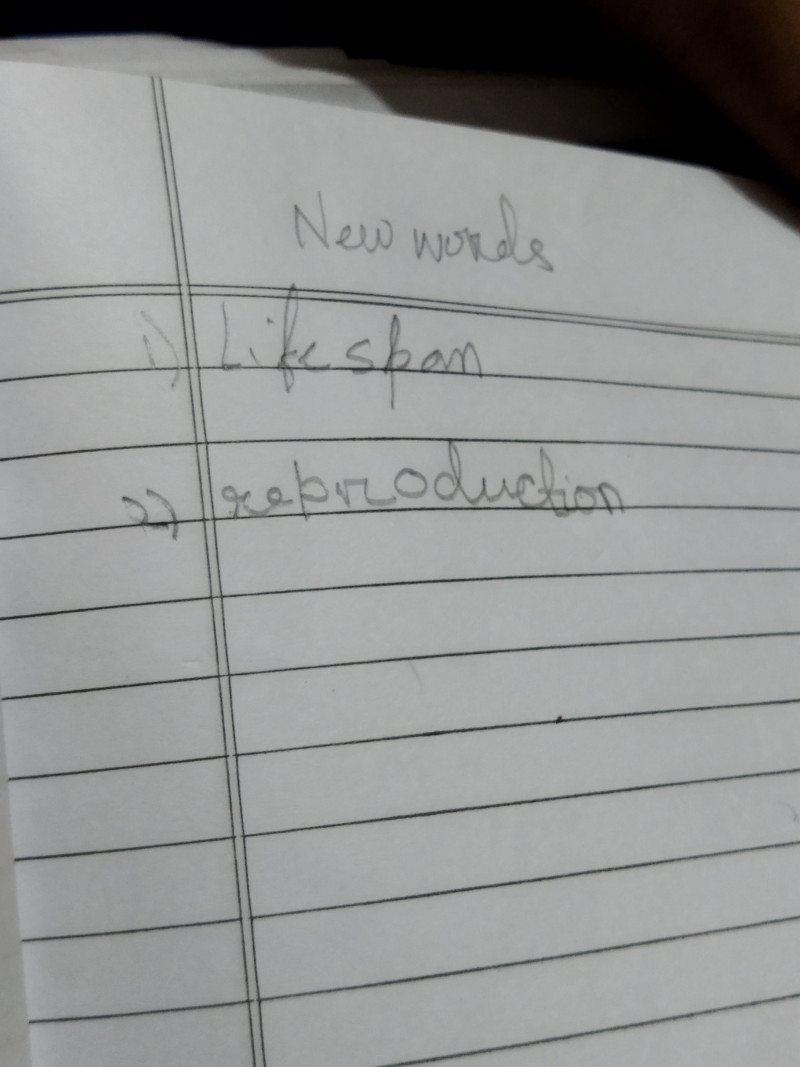 New words
1) Life span
2) reproduction